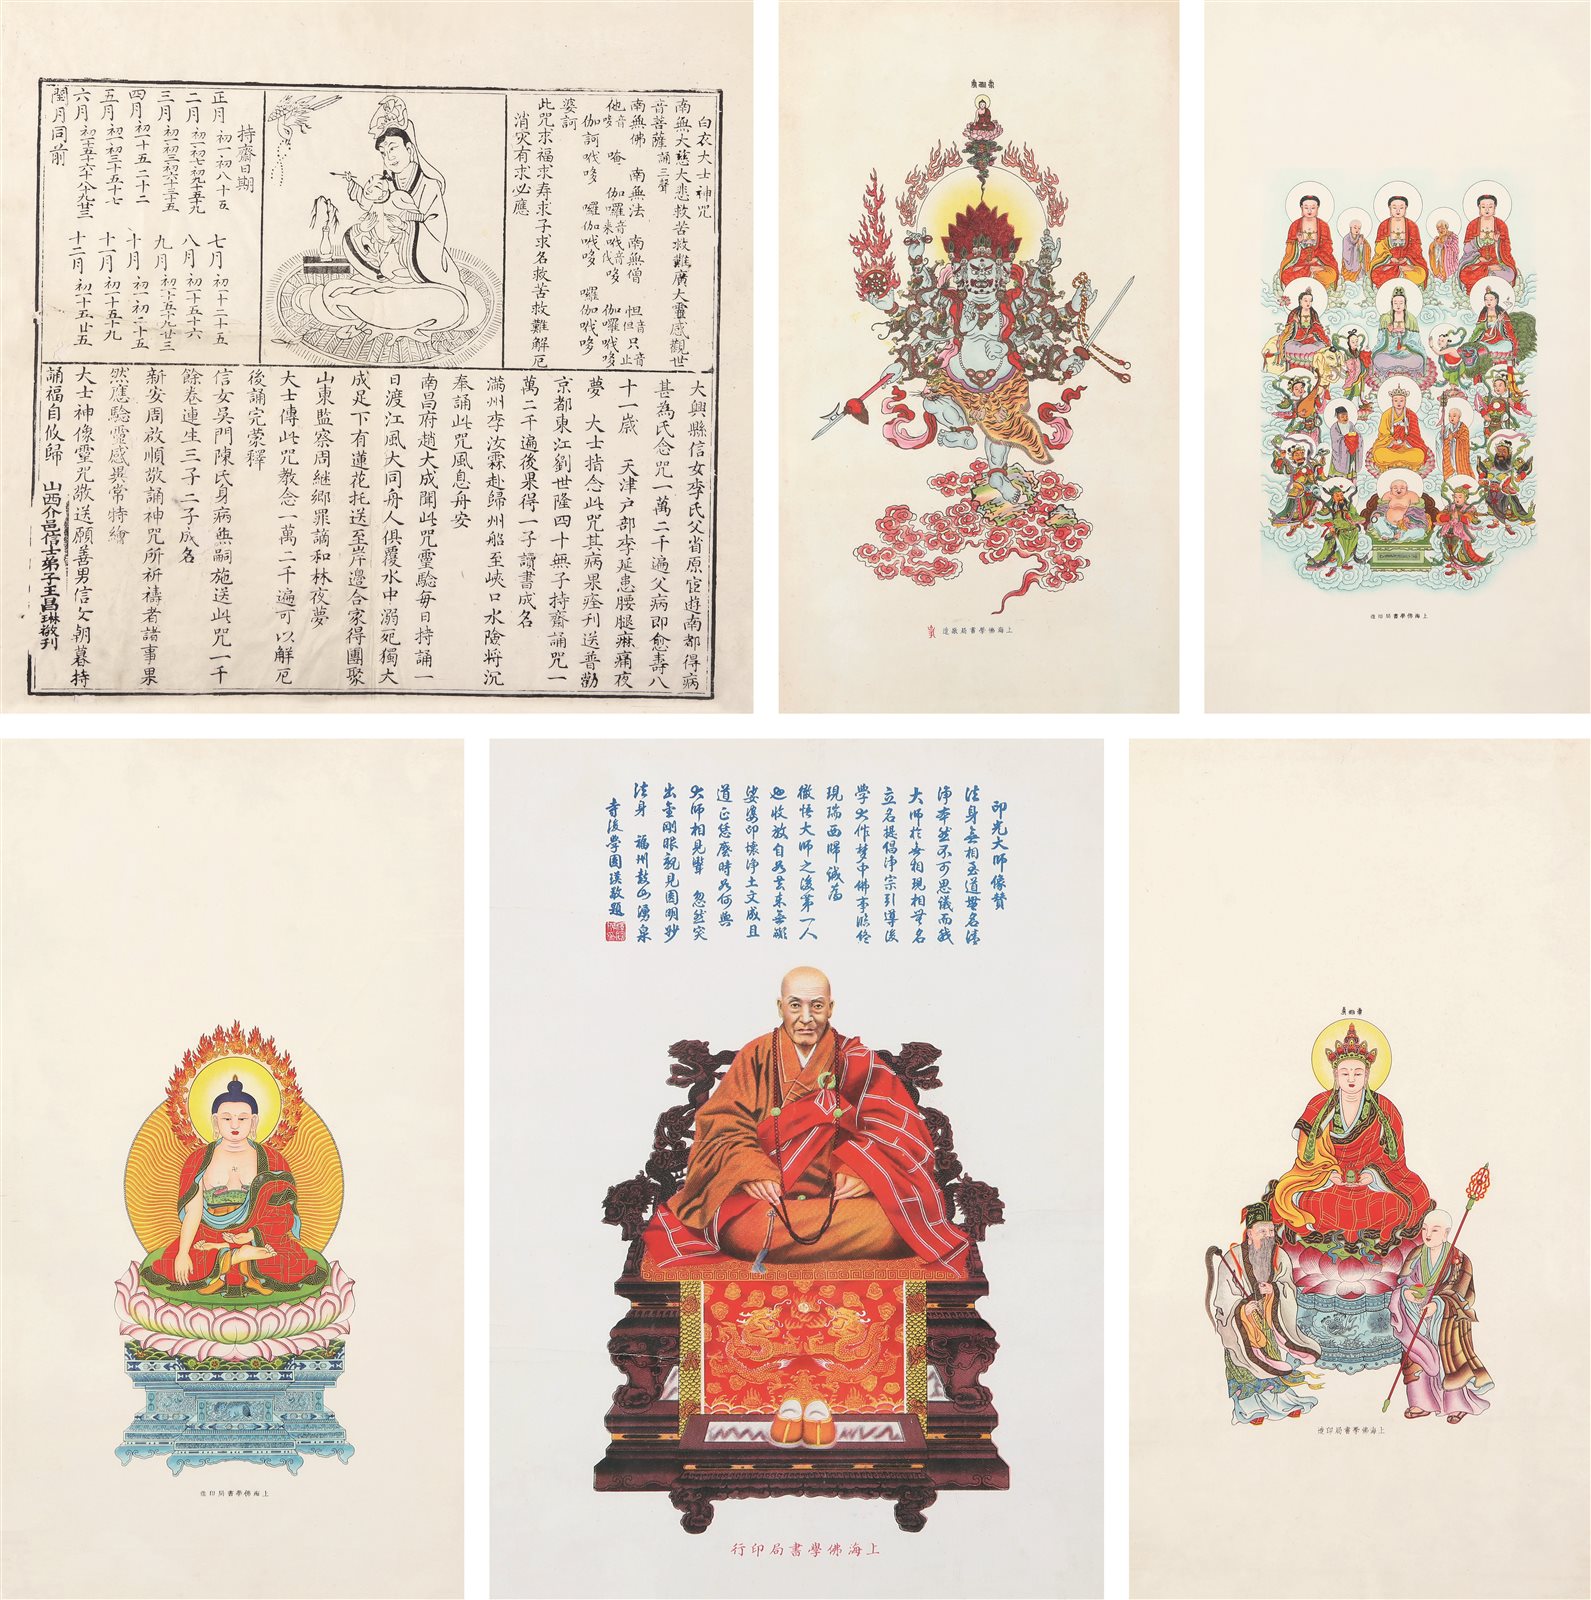 白衣大士神咒
南無大慈大悲救苦救難廣大靈感觀世
音菩薩 誦三聲
南無佛 南無法 南無僧 怛音但 只音止
他音哆 唵 伽囉音伐哆 伽囉伐哆
伽訶伐哆 囉伽伐哆 囉伽伐哆
婆訶
此咒求福求寿求子求名救苦救難解厄
消灾有求必應
持齋日期
正月 初一 初八 十五
四月 初一 十五 二十二
閏月同前
大興縣信女李氏父省原宦遊南都得病
甚為氏念咒一萬二千遍父病即愈壽八
十一歲 天津户部李延患腰腿痲痛夜
夢 大士指念此咒其病果痊刊送普勸
京都東江劉世隆四十無子持齋誦咒一
萬二千遍後果得一子讀書成名
滿州李汝霖赴歸州船至峽口水險將沉
奉誦此咒風息舟安
南昌府趙大成聞此咒靈驗每日持誦一
日渡江風大同舟人俱覆水中溺死獨大
成足下有蓮花托送至岸邊合家得團聚
山東監察周継郷罪謫和林夜夢
大士傳此咒教念一萬二千遍可以解厄
後誦完蒙釋
信女吳門陳氏身病無嗣施送此咒一千
餘卷連生三子二子成名
新安周啟順敬誦神咒所祈禱者諸事果
然應驗靈感異常特繪
大士神像靈咒敬送願善男信女朝暮持
誦福自攸歸 山西介邑信士弟子王昌琳敬刊
上海佛學書局敬造
上海佛學書局印造
上海佛學書局印造
印光大師像贊
法身無相至道無名清
淨本然不可思議而我
大師於無相現相無名
立名提倡淨宗引導後
學大作夢中佛事臨終
現瑞西歸誠為
徹悟大師之後第一人
也收放自如去來無礙
娑婆印壞淨土文成且
道正恁麼時如何與
大師相見聻 忽然突
出金剛眼親見圓明妙
法身 福州鼓山湧泉
寺後學圓瑛敬題
上海佛學書局印行
上海佛學書局印造